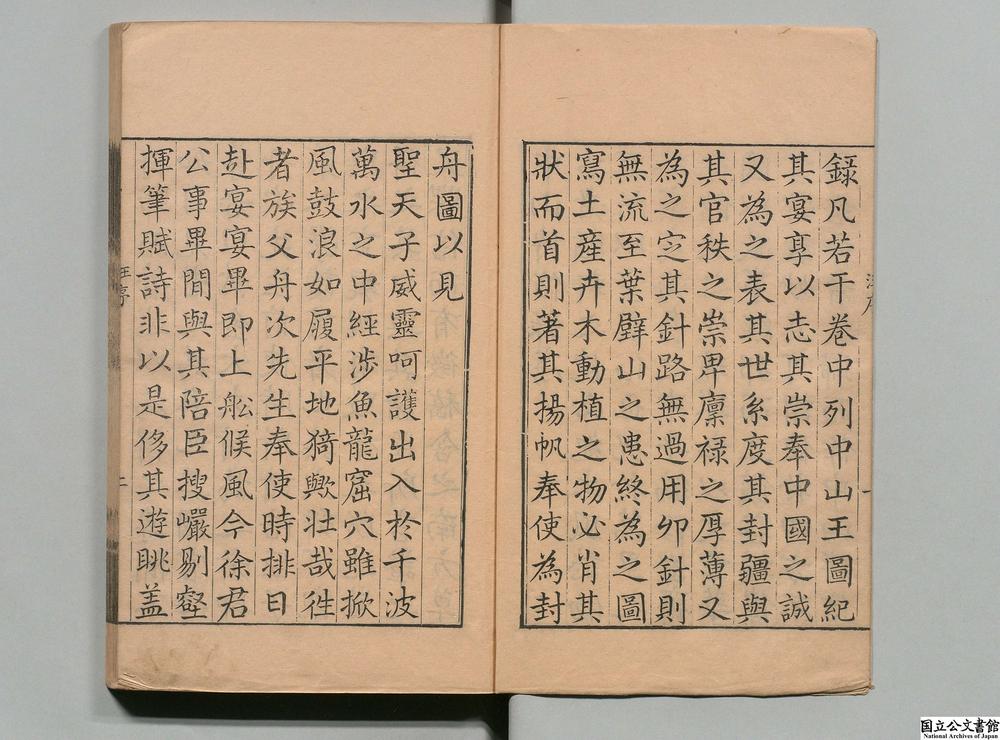 錄凡若干卷中列中山王圖紀
其宴享以志其崇奉中國之誠
又為之表其世系度其封疆與
其官秩之崇卑廩祿之厚薄又
為之定其針路無過用卯針則
無流至葉壁山之患終為之圖
寫土産卉木動植之物必肖其
狀而首則著其揚帆奉使為封
舟圖以見
聖天子威靈呵護出入於千波
萬水之中經涉魚龍窟穴雖掀
風鼓浪如履平地猗歟壯哉徃
者族父舟次先生奉使時排日
赴宴宴畢即上舩候風今徐君
公事畢間與其陪臣搜巗剔壑
揮筆賦詩非以是侈其遊眺盖
汪序
二
国立公文書館
National Archives of Japan